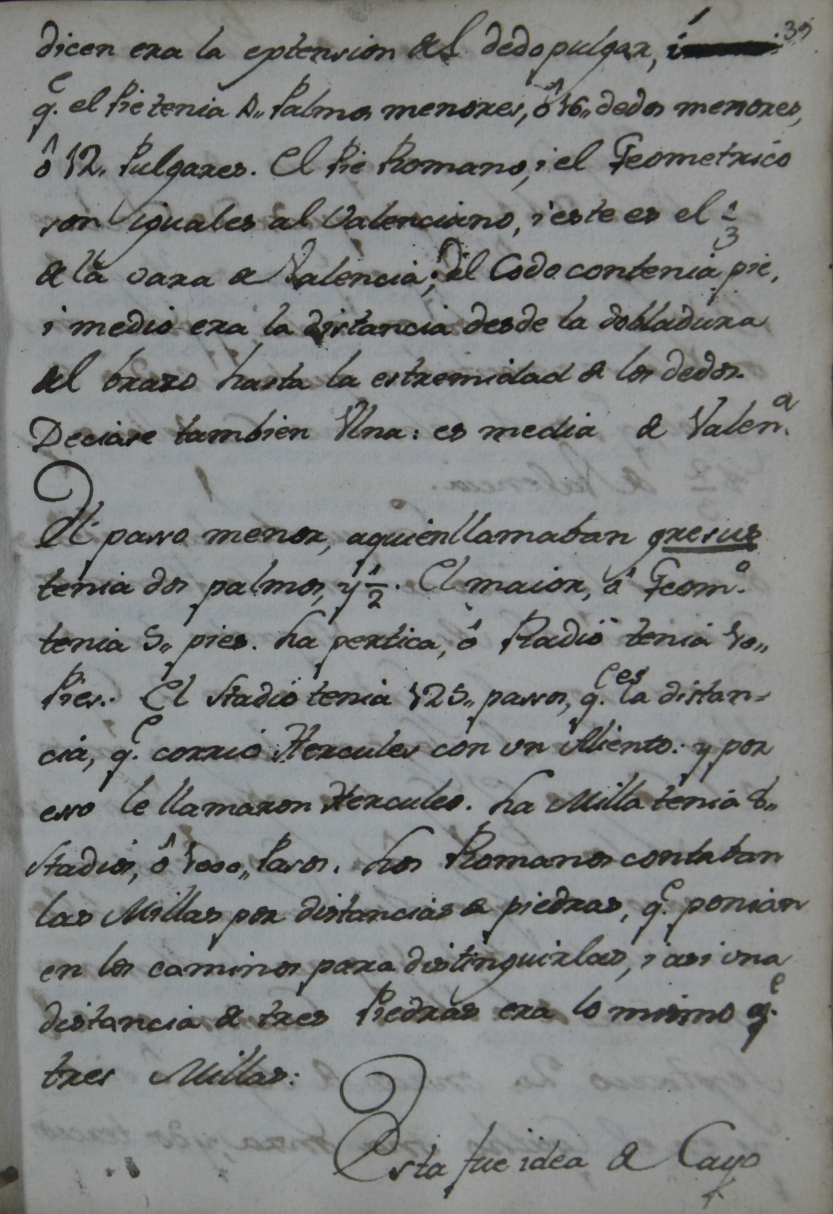 39
dicen era la extension del dedo pulgar, i
q.e el Pie tenia 4,, Palmos menores, ô 16,, dedos menores,
ô 12,, Pulgares. El Pie Romano, i el Geometrico
son iguales al Valenciano, i este es el 1/3
de la vara de Valencia; El Codo contenia pie,
i medio era la distancia desde la dobladura
del brazo hasta la estremidad de los dedos.
Deciase tambien Vlna: es media de Valen.a
El passo menor, a quien llamaban gresus
tenia dos palmos, y 1/2. El maior, ô Geom.o
tenia 5,, pies. La pertica, ô Radio tenia 10,,
Pies. El Stadio tenia 125,, passos, q.e es la distan-
cia, q.e corrió Hercules con un Aliento: y por
esso le llamaron Hercules. La Milla tenia 8,,
Stadios, ô 1000,, Pasos. Los Romanos contaban
las Millas por distancias de piedras, q.e ponian
en los caminos para distinguirlas, i asi una
distancia de tres Piedras era lo mismo q.e
tres Millas:
Esta fue idea de Cayo